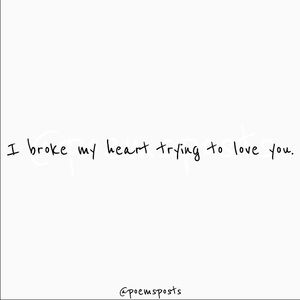 I broke my heart trying to love you.
@poemsposts